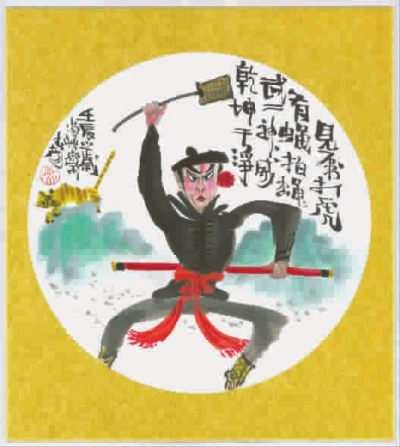 見虎打虎
有蠅拍蠅
武二神威
乾坤干淨
壬辰